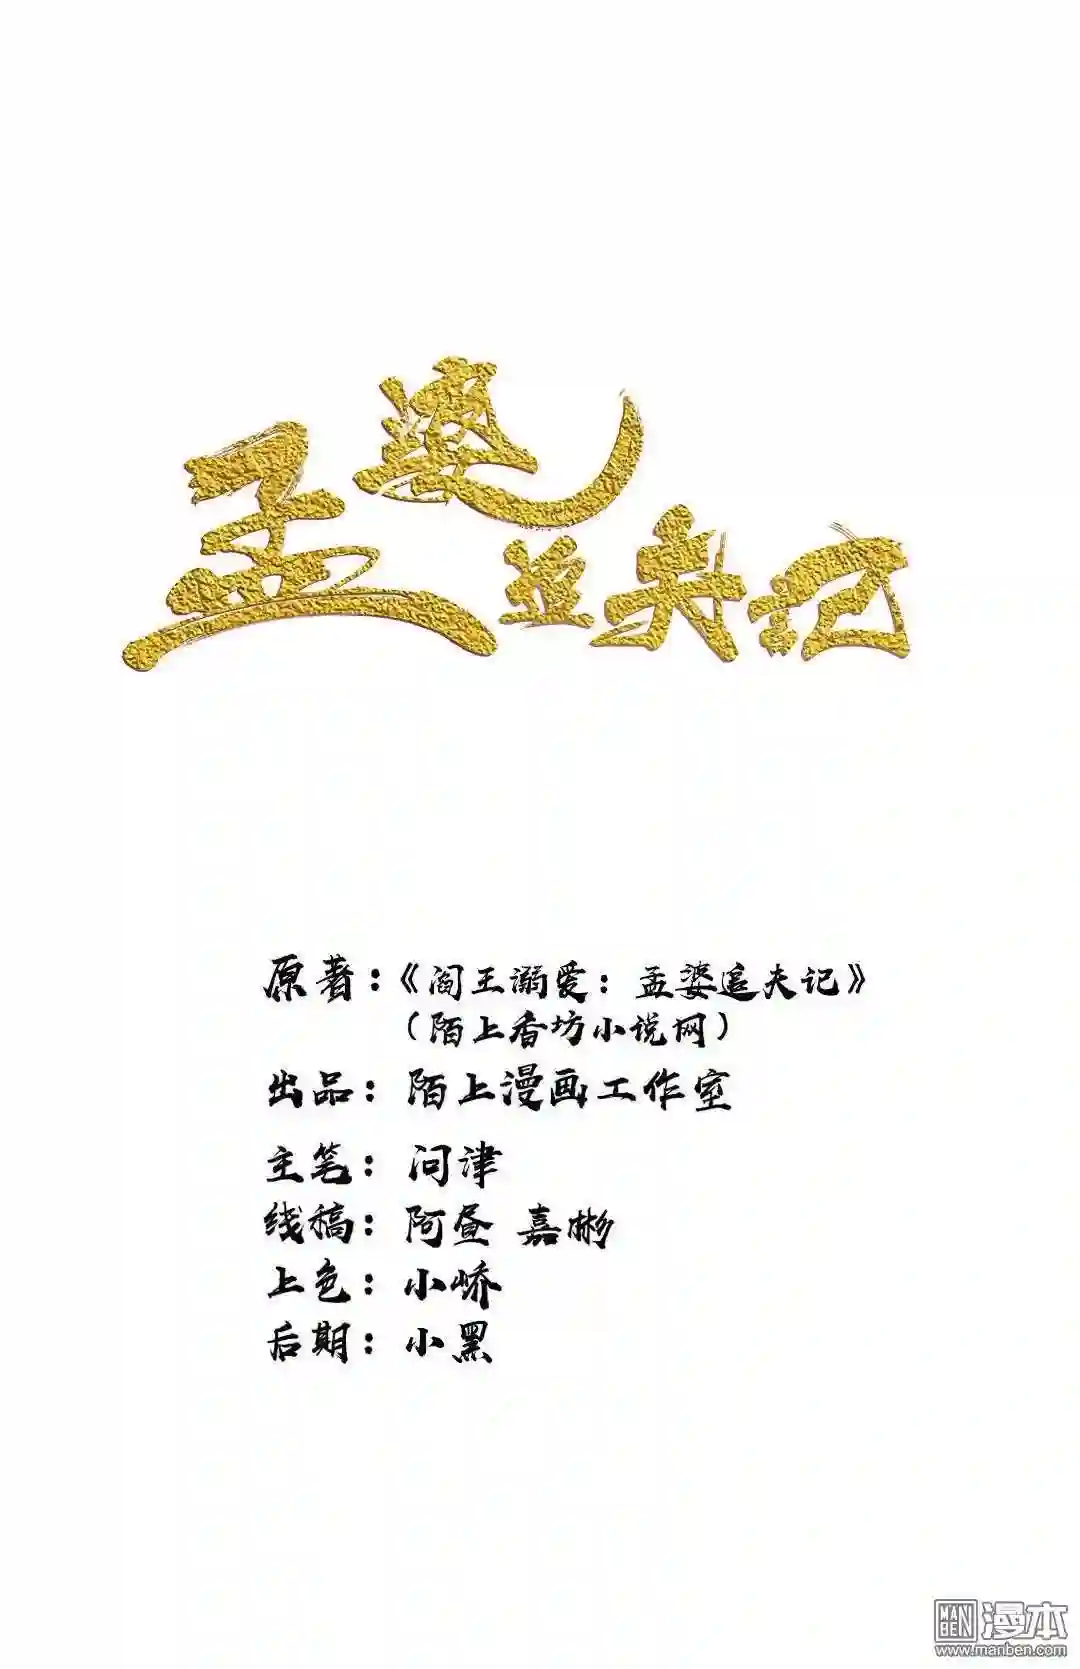 孟婆追夫记
原著：《阎王溺爱：孟婆追夫记》
（陌上香坊小说网）
出品：陌上漫画工作室
主笔：问津
线稿：阿昼 嘉彬
上色：小峤
后期：小黑
MAN
BEN 漫本
www.manben.com